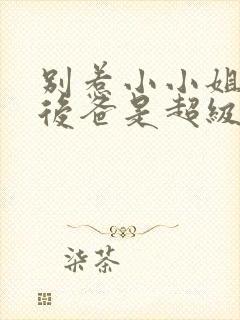 別惹小小姐
後爸是超級
柒茶